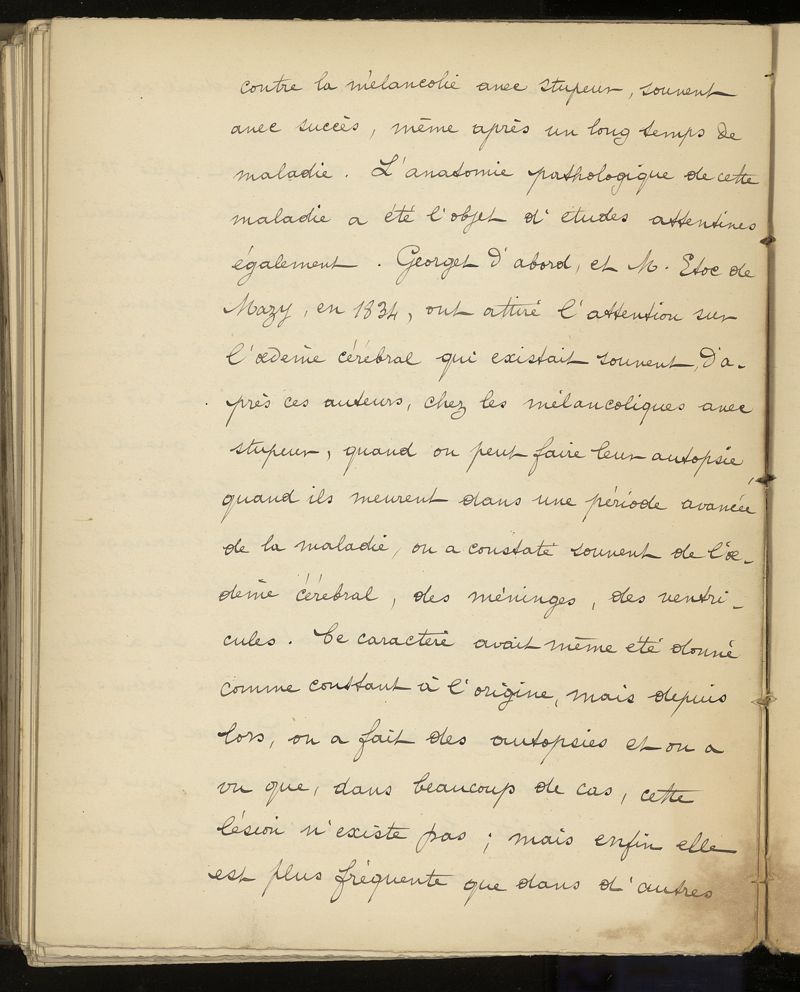 contre la mélancolie avec stupeur, souvent
avec succès, même après un long temps de
maladie. L'anatomie pathologique de cette
maladie a été l'objet d'études attentives
également. Georget d'abord, et M. Etoc de
Mazy, en 1834, ont attiré l'attention sur
l'œdème cérébral qui existait souvent, d'a-
près ces auteurs, chez les mélancoliques avec
stupeur, quand on peut faire leur autopsie,
quand ils meurent dans une période avancée
de la maladie, on a constaté souvent de l'œ-
dème cérébral, des méninges, des ventri-
cules. Ce caractère avait même été donné
comme constant à l'origine, mais depuis
lors, on a fait des autopsies et on a
vu que, dans beaucoup de cas, cette
lésion n'existe pas ; mais enfin elle
est plus fréquente que dans d'autres